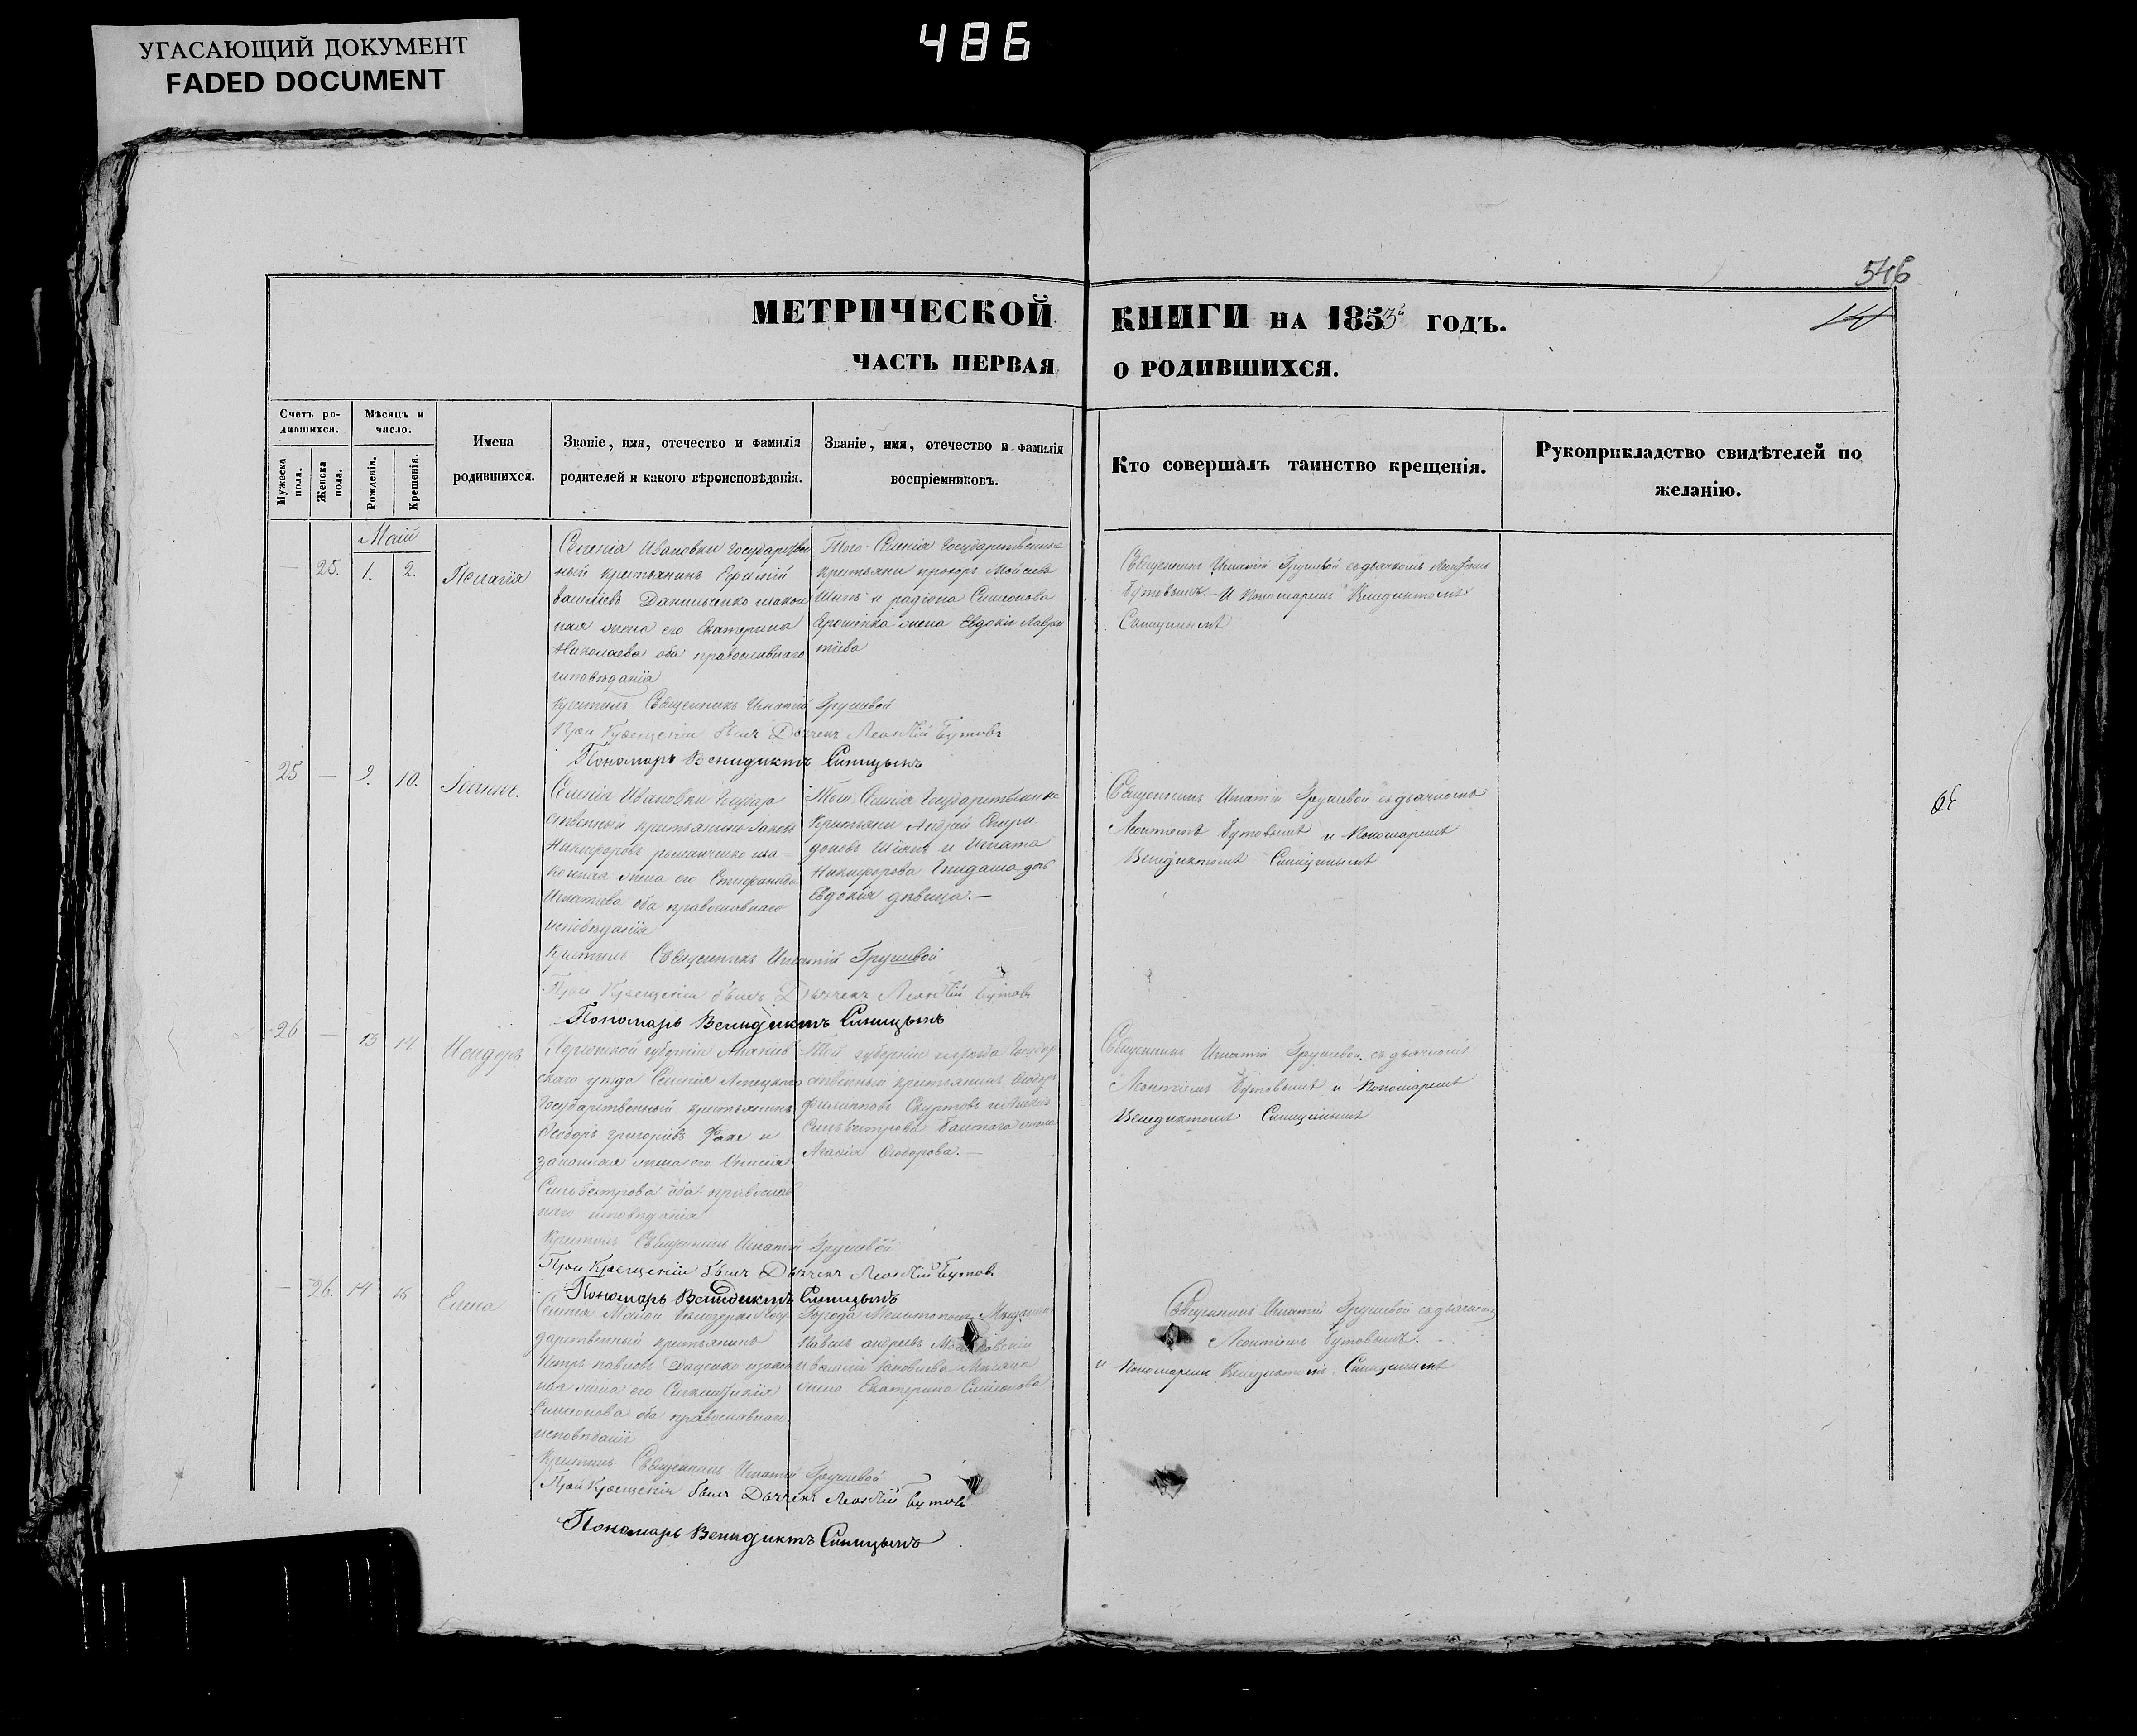 УГАСАЮЩИЙ ДОКУМЕНТ
FADED DOCUMENT
486
546
МЕТРИЧЕСКОЙ КНИГИ НА 1853й ГОДЪ.
ЧАСТЬ ПЕРВАЯ О РОДИВШИХСЯ.
Счетъ родившихся.
Мужеска пола.
Женска пола.
Мѣсяцъ и число.
Рожденія.
Крещенія.
Имена родившихся.
Званіе, имя, отечество и фамилія родителей и какого вѣроисповѣданія.
Званіе, имя, отечество и фамилія воспріемниковъ.
Кто совершалъ таинство крещенія.
Рукоприкладство свидѣтелей по желанію.
Маій
— 25. 1. 2. Пелагія
Селенія Ивановки Государствен
ный крестьянинъ Ефимій
Данильченко закон
ная жена его Екатерина
Николаева оба православнаго
исповѣданія
Того Селенія Государственные
крестьяне прохоръ Моисеевъ
и радіона Симеонова
жена Евдокія Лаврен
тіева
Священникъ Игнатій Грушевой съ дьячкомъ Леонтіемъ
Бутовымъ.— И пономаремъ Венедиктомъ
Синицынымъ
крестилъ Священникъ Игнатій Грушевой
При Крещеніи былъ Дьячекъ Леонтій Бутовъ
Пономарь Венидиктъ Синицынъ
25 — 9. 10. Іоаннъ.
Селенія Ивановки Государ
ственный крестьянинъ Іаковъ
Никифоровъ романченко за
конная жена его Стефанида
Игнатіева оба православнаго
исповѣданія
Того Селенія Государственные
крестьяне Андрей Спири
доновъ и Игната
Никифорова дочь
Евдокія дѣвица.—
Священникъ Игнатій Грушевой съ дьячкомъ
Леонтіемъ Бутовымъ и Пономаремъ
Венедиктомъ Синицынымъ
Крестилъ Священникъ Игнатій Грушевой
При Крещеніи былъ Дьячекъ Леонтій Бутовъ
Пономарь Венидиктъ Синицынъ
26 — 13 14 Исидоръ
губерніи Ананіев
скаго уѣзда Селенія
Государственный крестьянинъ
Ѳеодоръ григоріевъ и
законная жена его
Сильвестрова оба православ
наго исповѣданія
Той губерніи и уѣзда Государ
ственный крестьянинъ Ѳеодоръ
филиповъ
Сильвестрова жена
Агафія Ѳеодорова.—
Священникъ Игнатій Грушевой съ дьячкомъ
Леонтіемъ Бутовымъ и Пономаремъ
Венедиктомъ Синицынымъ
Крестилъ Священникъ Игнатій Грушевой
При Крещеніи былъ Дьячекъ Леонтій Бутовъ
Пономарь Венидиктъ Синицынъ
— 26. 14 15 Елена
Селенія Малой Белозерки Госу
дарственный крестьянинъ
Петръ павловъ и закон
ная жена его
Симеонова оба православнаго
исповѣданія
Города Мелитополя Мещанинъ
Павелъ андреевъ
жена Екатерина Симеонова
Священникъ Игнатій Грушевой съ дьячкомъ
Леонтіемъ Бутовымъ.
и пономаремъ Венедиктомъ Синицынымъ
Крестилъ Священникъ Игнатій Грушевой
При Крещеніи былъ Дьячекъ Леонтій Бутовъ
Пономарь Венидиктъ Синицынъ